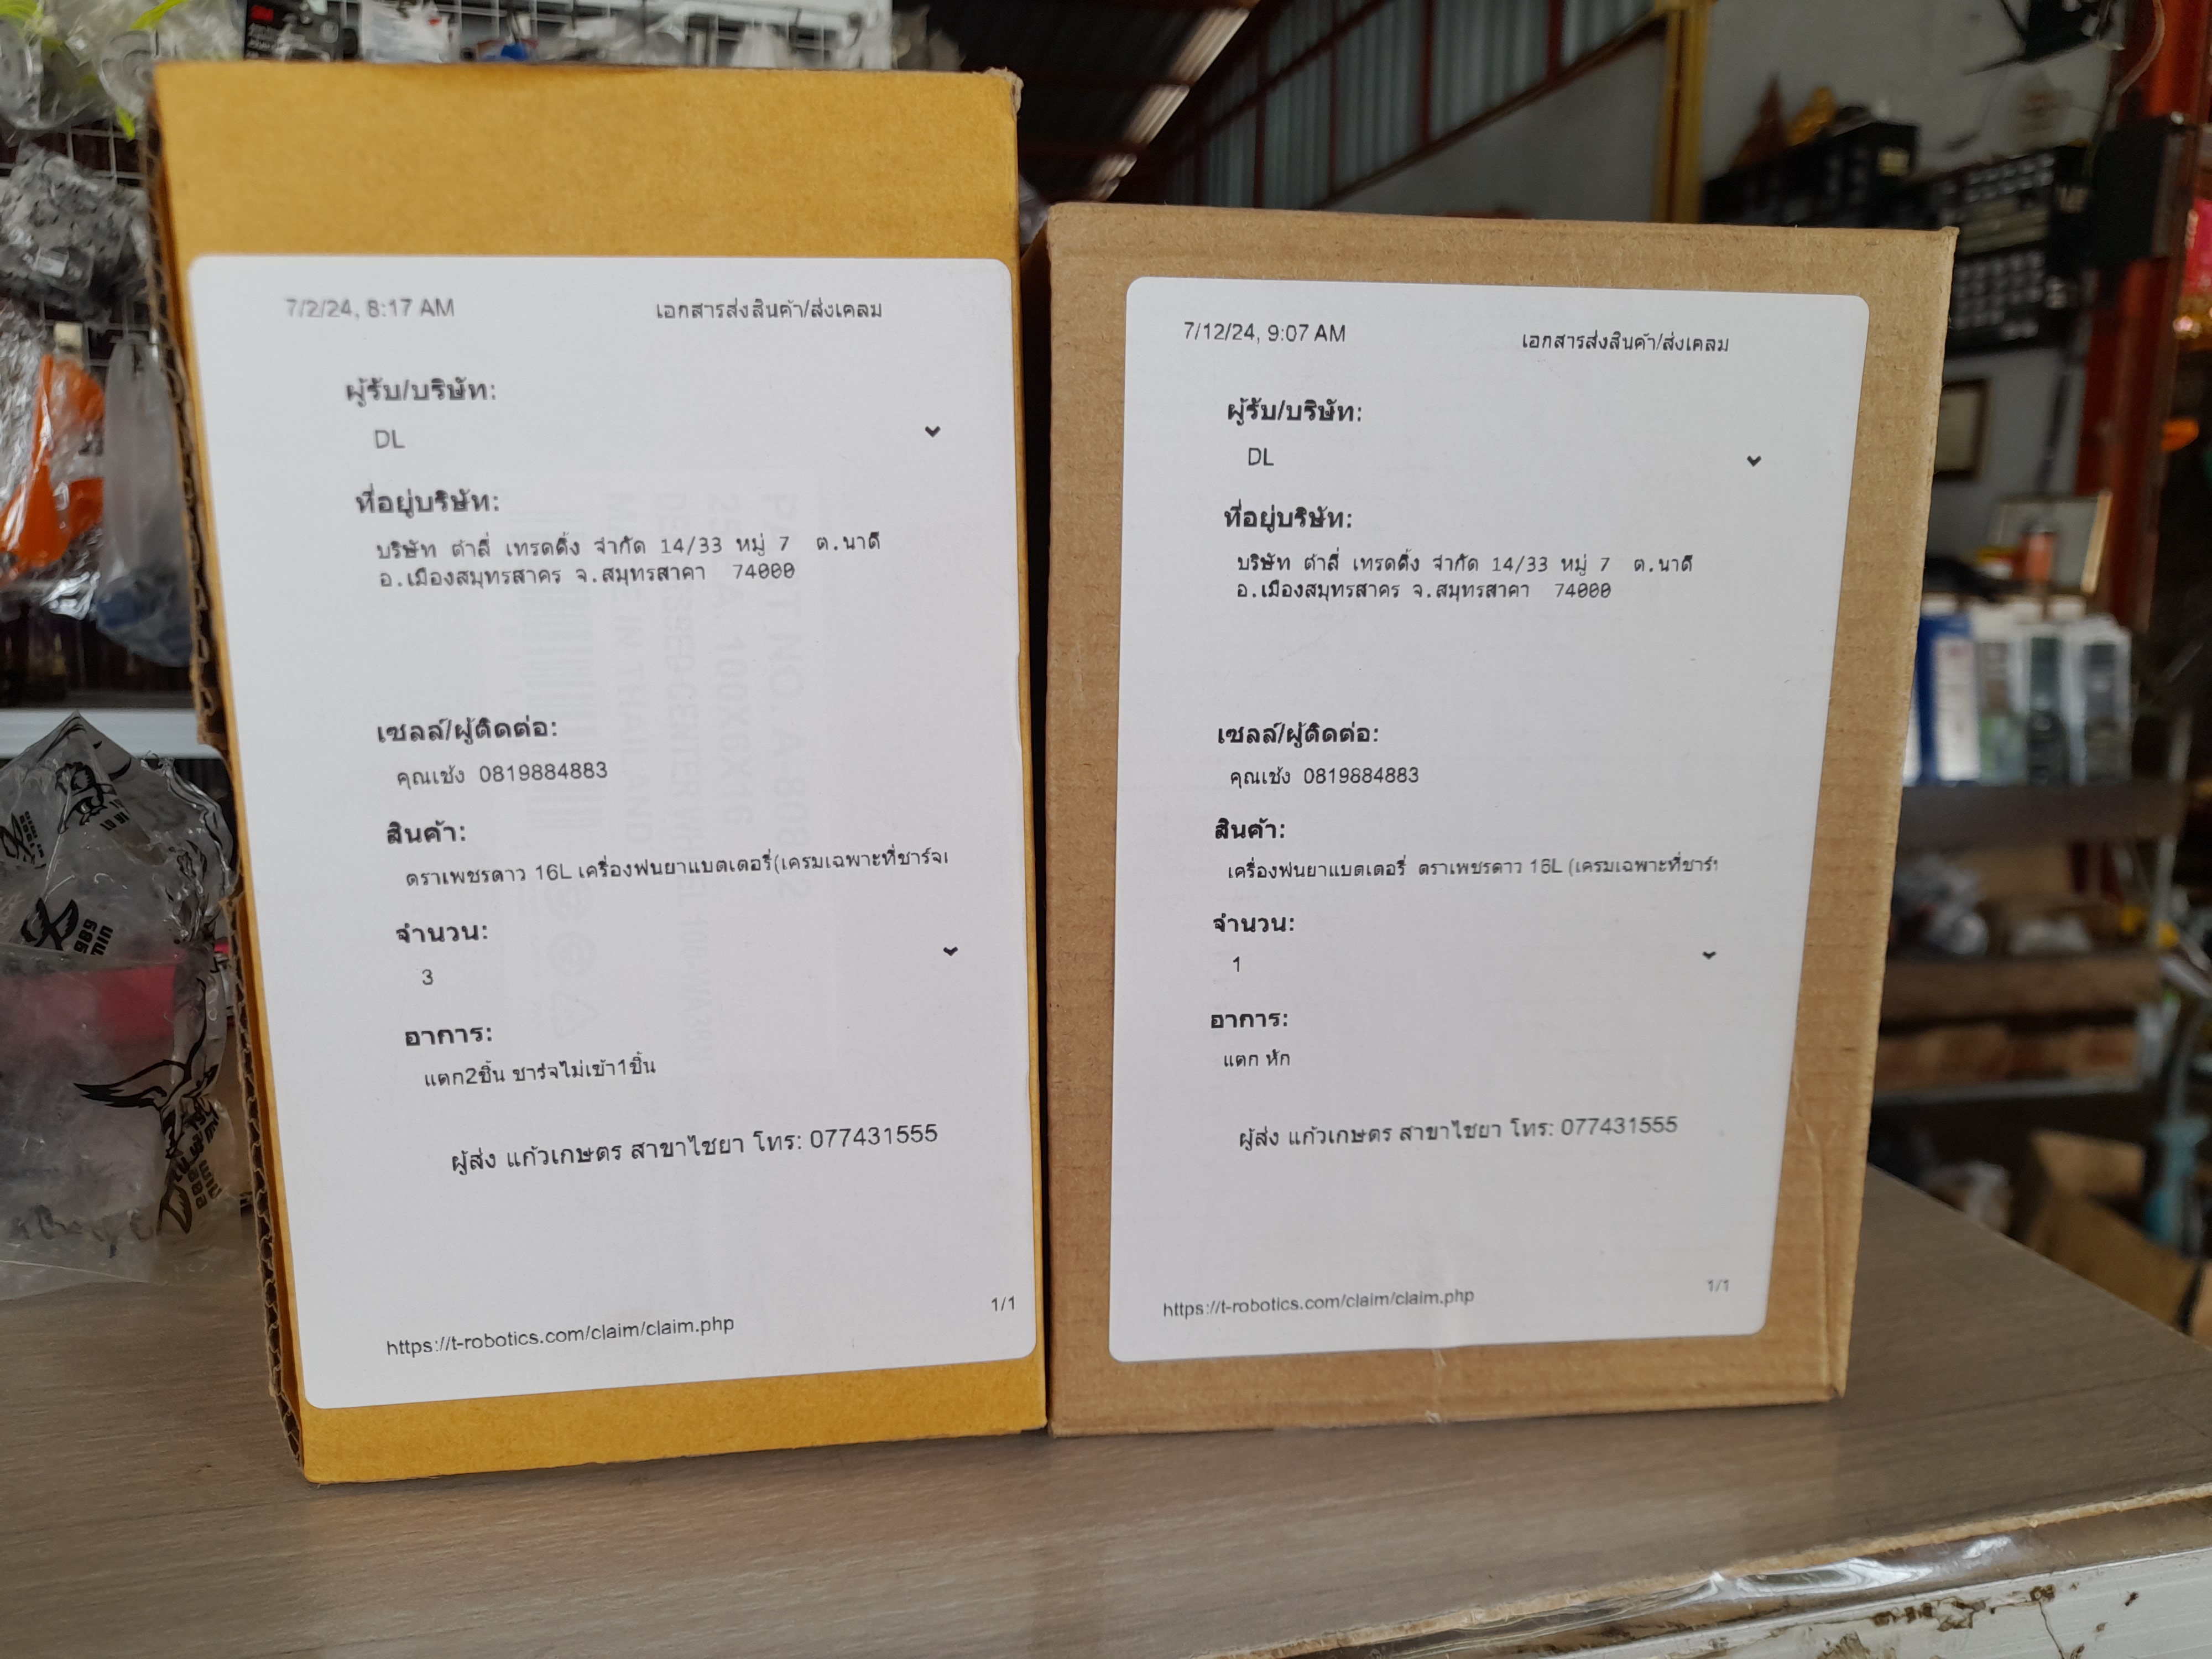 7/2/24, 8:17 AM
เอกสารส่งสินค้า/ส่งเคลม
ผู้รับ/บริษัท:
DL
ที่อยู่บริษัท:
บริษัท ต๋าลี่ เทรดดิ้ง จำกัด 14/33 หมู่ 7 ต.นาดี
อ.เมืองสมุทรสาคร จ.สมุทรสาคา 74000
เซลล์/ผู้ติดต่อ:
คุณเช้ง 0819884883
สินค้า:
ตราเพชรดาว 16L เครื่องพ่นยาแบตเตอรี่(เครมเฉพาะที่ชาร์จเ
จำนวน:
3
อาการ:
แตก2ชิ้น ชาร์จไม่เข้า1ชิ้น
ผู้ส่ง แก้วเกษตร สาขาไชยา โทร: 077431555
1/1
https://t-robotics.com/claim/claim.php
7/12/24, 9:07 AM
เอกสารส่งสินค้า/ส่งเคลม
ผู้รับ/บริษัท:
DL
ที่อยู่บริษัท:
บริษัท ต๋าลี่ เทรดดิ้ง จำกัด 14/33 หมู่ 7 ต.นาดี
อ.เมืองสมุทรสาคร จ.สมุทรสาคา 74000
เซลล์/ผู้ติดต่อ:
คุณเช้ง 0819884883
สินค้า:
เครื่องพ่นยาแบตเตอรี่ ตราเพชรดาว 16L (เครมเฉพาะที่ชาร์
จำนวน:
1
อาการ:
แตก หัก
ผู้ส่ง แก้วเกษตร สาขาไชยา โทร: 077431555
1/1
https://t-robotics.com/claim/claim.php